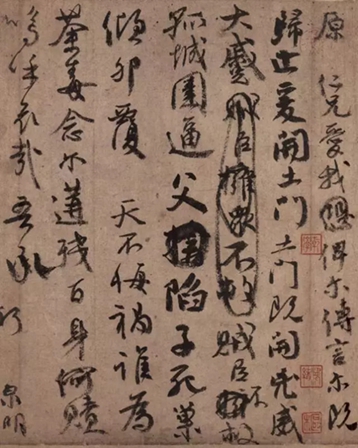 原 仁兄愛我恐俾尔傳言尔既
歸止爰開土門土門既開凶威
大蹙賊臣擁衆不救賊臣不救
孤城圍逼父陷子死巢
傾卵覆 天不悔禍誰為
荼毒念尔遘殘百身何贖
嗚乎哀哉吾承
泉明